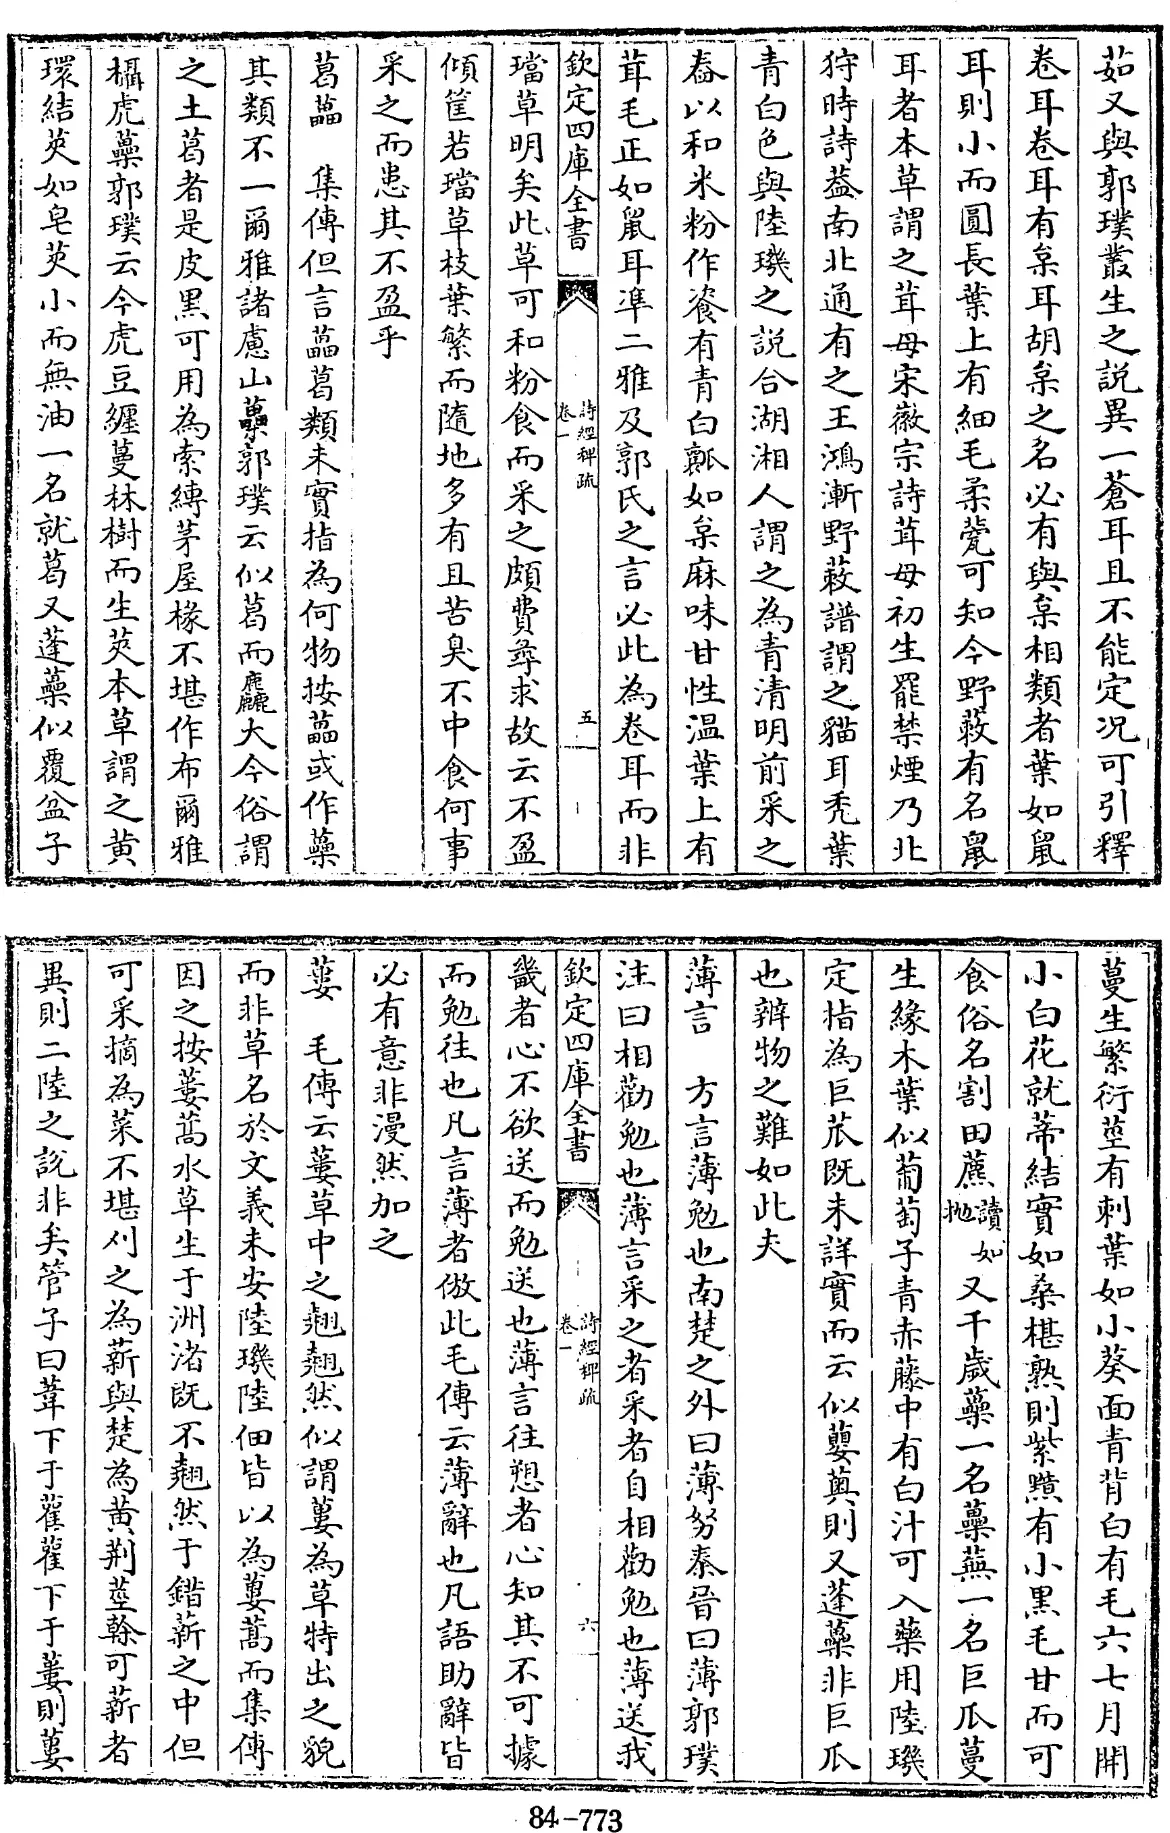 茹又與郭璞叢生之説異一蒼耳且不能定况可引釋
卷耳卷耳有枲耳胡枲之名必有與枲相類者葉如鼠
耳則小而圓長葉上有細毛柔毳可知今野蔌有名鼠
耳者本草謂之茸母宋徽宗詩茸母初生罷禁煙乃北
狩時詩葢南北通有之王鴻漸野蔌譜謂之貓耳秃葉
青白色與陸璣之説合湖湘人謂之為青清明前采之
舂以和米粉作餈有青白瓤如枲麻味甘性温葉上有
茸毛正如鼠耳凖二雅及郭氏之言必此為卷耳而非
欽定四庫全書
詩經稗疏
卷一
五
璫草明矣此草可和粉食而采之頗費尋求故云不盈
傾筐若璫草枝葉繁而隨地多有且苦臭不中食何事
采之而患其不盈乎
葛藟　集傳但言藟葛類未實指為何物按藟或作虆
其類不一爾雅諸慮山虆郭璞云似葛而麤大今俗謂
之土葛者是皮黑可用為索縛茅屋椽不堪作布爾雅
欇虎虆郭璞云今虎豆纒蔓林樹而生莢本草謂之黄
環結莢如皂莢小而無油一名就葛又蓬虆似覆盆子
蔓生繁衍莖有刺葉如小葵面青背白有毛六七月開
小白花就蒂結實如桑椹熟則紫黯有小黒毛甘而可
食俗名割田藨讀如抛又千歳虆一名虆蕪一名巨瓜蔓
生縁木葉似葡萄子青赤藤中有白汁可入藥用陸璣
定指為巨苽既未詳實而云似蘡薁則又蓬虆非巨瓜
也辨物之難如此夫
薄言　方言薄勉也南楚之外曰薄努秦晉曰薄郭璞
注曰相勸勉也薄言采之者采者自相勸勉也薄送我
欽定四庫全書
詩經稗疏
卷一
六
畿者心不欲送而勉送也薄言往愬者心知其不可據
而勉往也凡言薄者倣此毛傳云薄辭也凡語助辭皆
必有意非漫然加之
蔞　毛傳云蔞草中之翹翹然似謂蔞為草特出之貌
而非草名於文義未安陸璣陸佃皆以為蔞蒿而集傳
因之按蔞蒿水草生于洲渚既不翹然于錯薪之中但
可采摘為菜不堪刈之為薪與楚為黄荆莖榦可薪者
異則二陸之説非矣管子曰葦下于雚雚下于蔞則蔞
84-773